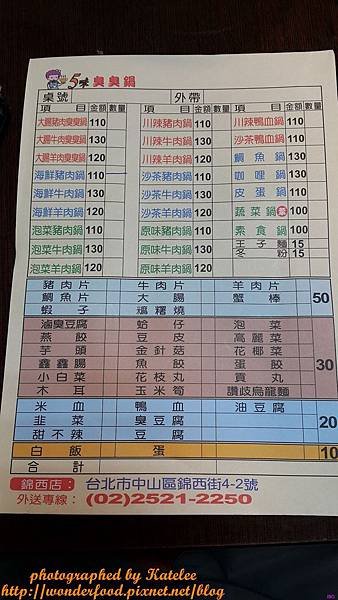 5味臭臭鍋
桌號 外帶
項目 金額 數量 項目 金額 數量 項目 金額 數量
大腸豬肉臭臭鍋 110 川辣豬肉鍋 110 川辣鴨血鍋 110
大腸牛肉臭臭鍋 130 川辣牛肉鍋 130 沙茶鴨血鍋 110
大腸羊肉臭臭鍋 120 川辣羊肉鍋 120 鯛魚鍋 110
海鮮豬肉鍋 110 沙茶豬肉鍋 110 咖哩鍋 110
海鮮牛肉鍋 130 沙茶牛肉鍋 130 皮蛋鍋 110
海鮮羊肉鍋 120 沙茶羊肉鍋 120 蔬菜鍋 100
泡菜豬肉鍋 110 原味豬肉鍋 110 素食鍋 100
泡菜牛肉鍋 130 原味牛肉鍋 130 王子麵 15
冬粉 15
泡菜羊肉鍋 120 原味羊肉鍋 120
豬肉片 牛肉片 羊肉片
鯛魚片 大腸 蟹棒 50
蝦子 福糬燒
滷臭豆腐 蛤仔 泡菜
燕餃 豆皮 高麗菜
芋頭 金針菇 花椰菜
鑫鑫腸 魚餃 蛋餃 30
小白菜 花枝丸 貢丸
木耳 玉米筍 讚岐烏龍麵
米血 鴨血 油豆腐
韭菜 臭豆腐 20
甜不辣 豆腐
白飯 蛋 10
合計
錦西店： 台北市中山區錦西街4-2號
外送專線： (02)2521-2250
photographed by Katelee
http://wonderfood.pixnet.net/blog